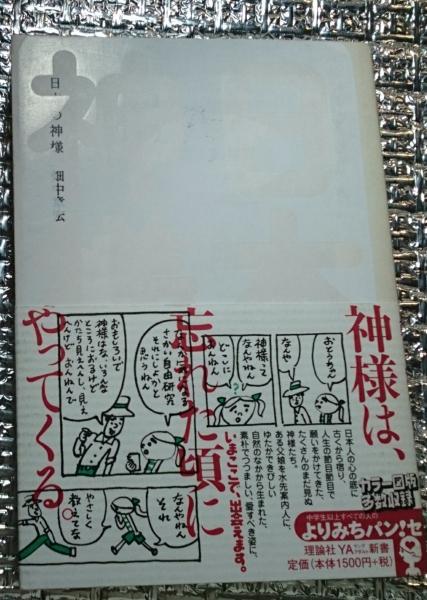 日本の神様
畑中章宏
神様は、
忘れた頃に
やってくる
おとうちゃん
なんや
神様って
なんやねん
どこに
おんねん
?
それにしようかと
思うねん
おもしろいで
神様はな、いろんな
ところにおるけど
かたち見えへんし、見え
へんけど、おんねんで
なんやねん
それ
やさしく
教えてな
日本人の心の底に
古くから宿り、
人生の節目節目で
願いをかけてきた、
たくさんのまだ見ぬ
神様たち。
ある父娘を水先案内人に、
ゆたかできびしい
自然のなかから生まれた、
素朴でつつましい、愛すべき姿に、
いまここで、出会えます。
カラー図版
多数収録
中学生以上すべての人の
よりみちパン!セ
理論社 YA新書
定価(本体1500円+税)